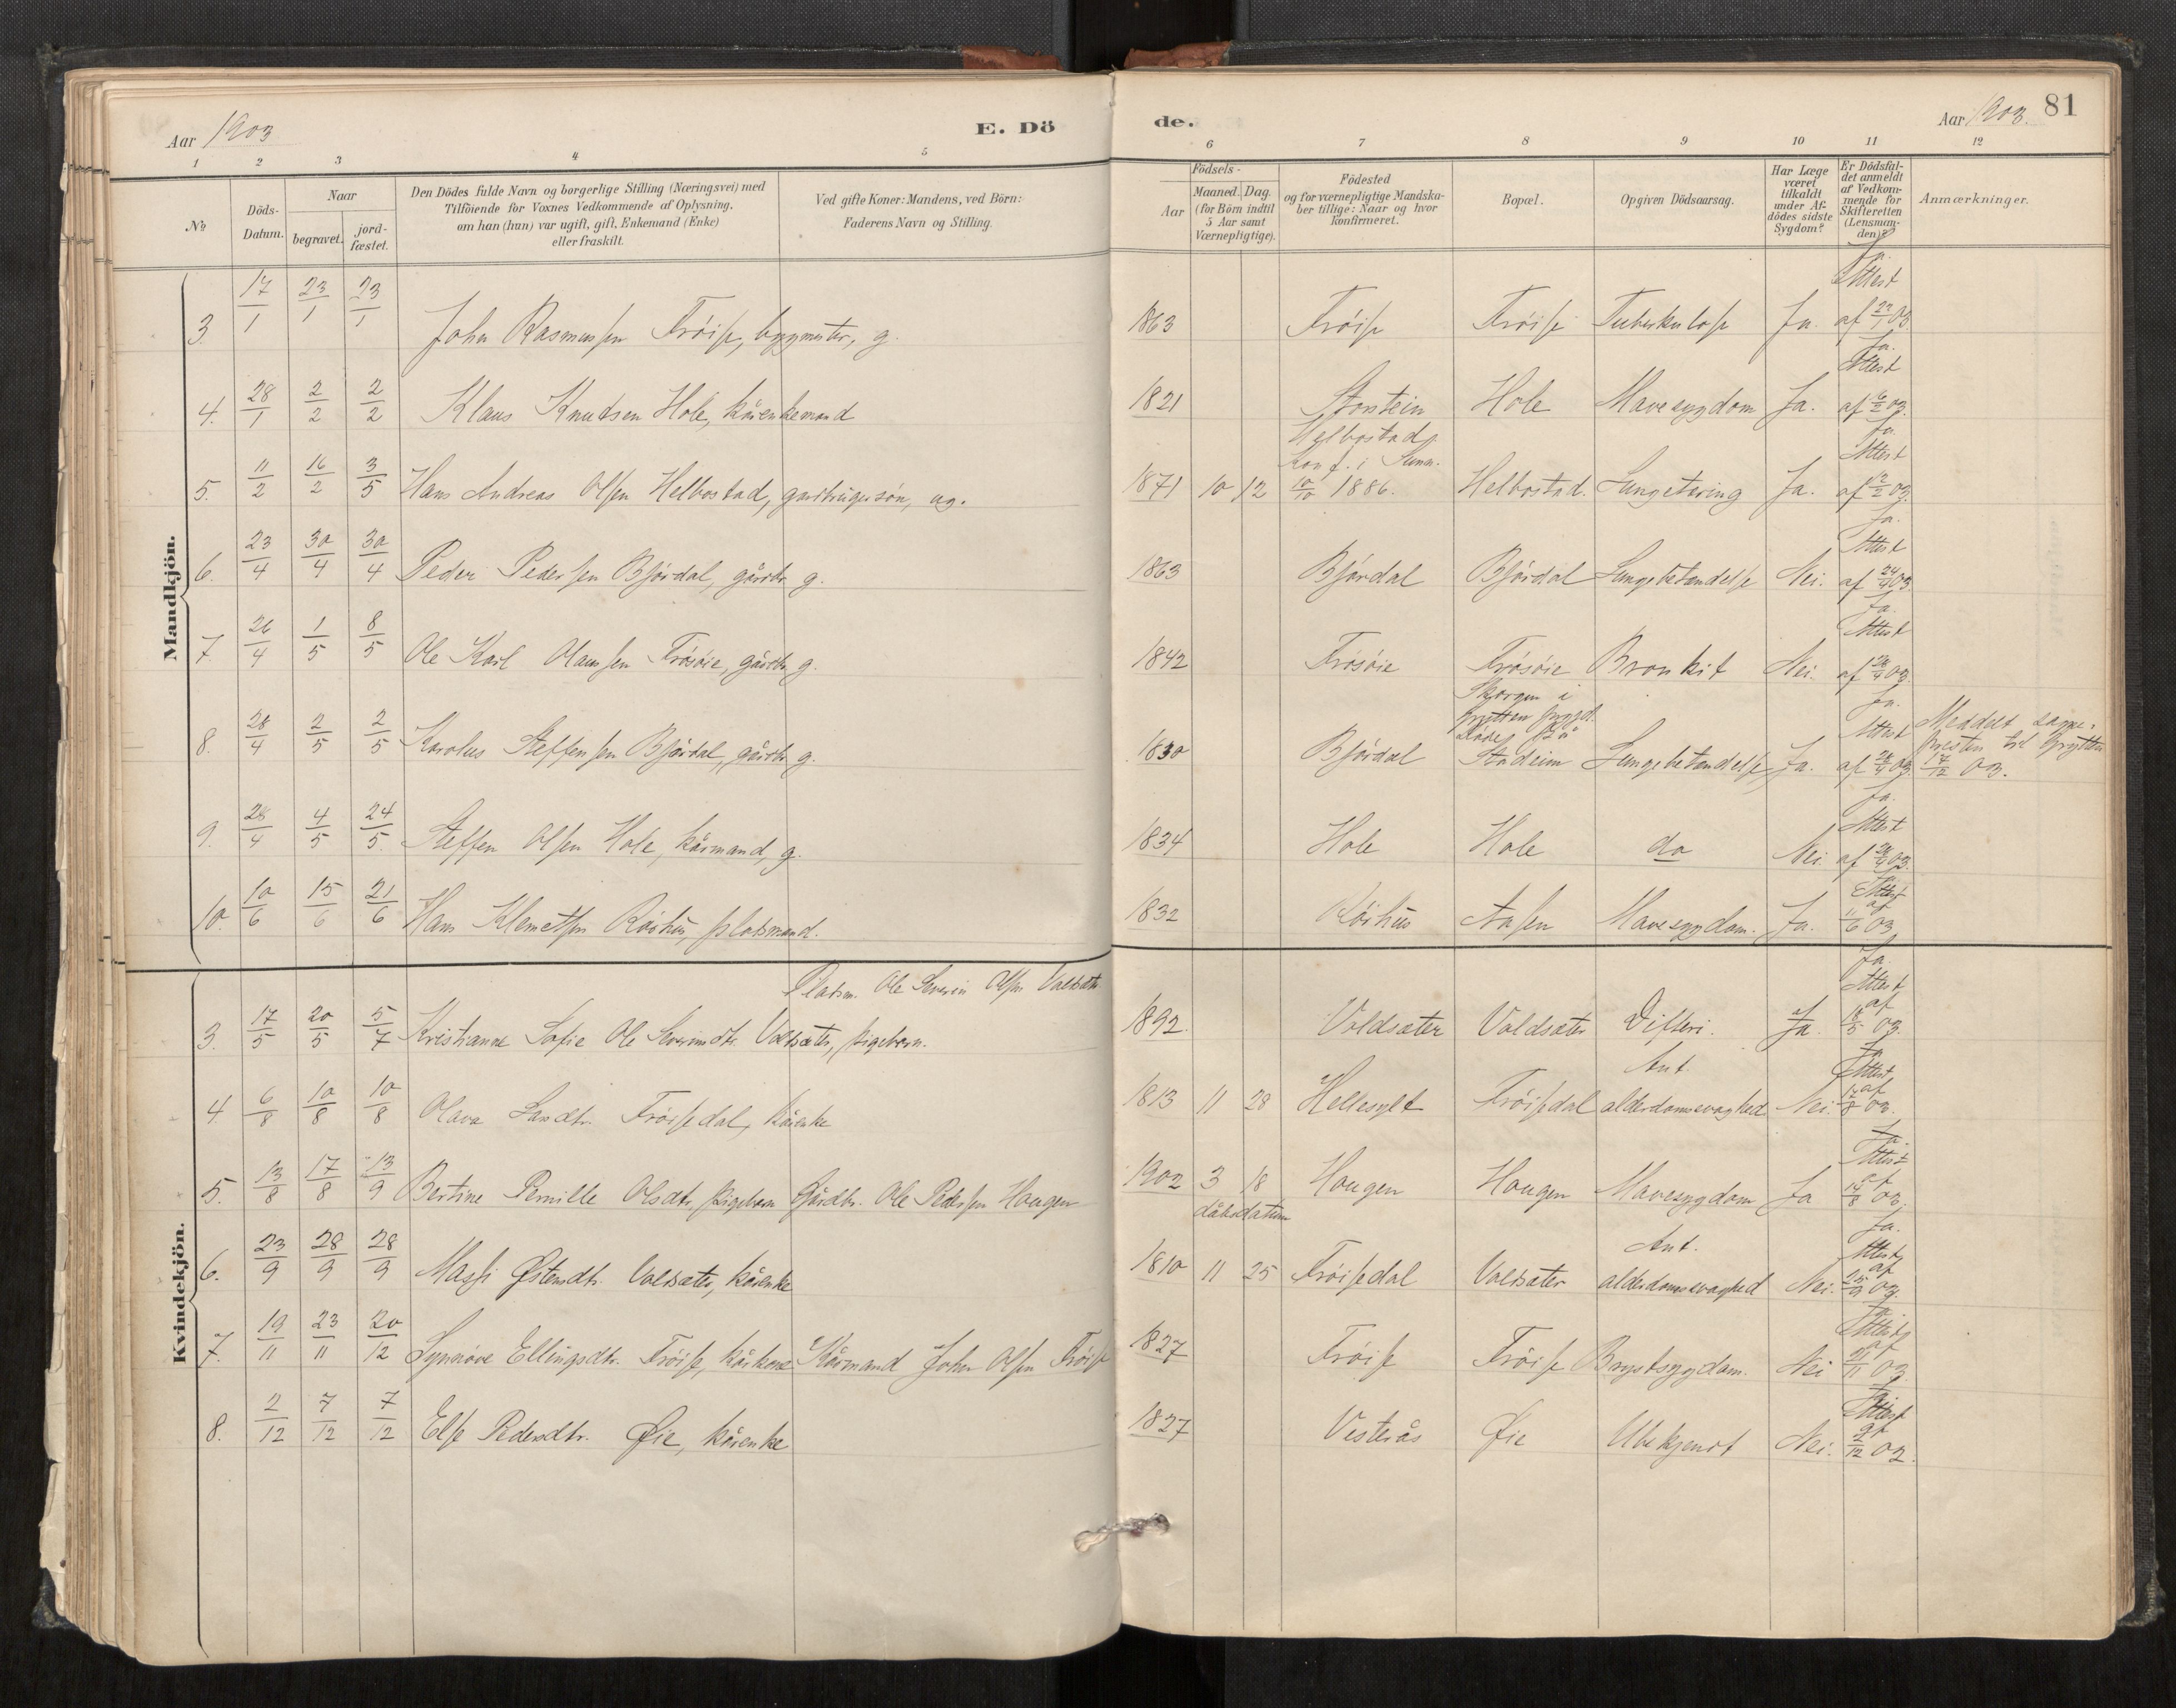 Aar 1903
E. Dö
de.
Aar 1903.
81
1 2 3 4 5 6 7 8 9 10 11 12
No.
Döds-
Datum.
Naar
begravet.
jord-
fæstet.
Den Dödes fulde Navn og borgerlige Stilling (Næringsvei) med
Tilföiende for Voxnes Vedkommende af Oplysning,
om han (hun) var ugift, gift, Enkemand (Enke)
eller fraskilt.
Ved gifte Koner: Mandens, ved Börn:
Faderens Navn og Stilling.
Födsels-
Aar
Maaned. Dag.
(for Börn indtil
5 Aar samt
Værnepligtige).
Födested
og for værnepligtige Mandska-
ber tillige: Naar og hvor
konfirmeret.
Bopæl.
Opgiven Dödsaarsag.
Har Læge
været
tilkaldt
under Af-
dödes sidste
Sygdom?
Er Dödsfal-
det anmeldt
af Vedkom-
mende for
Skifteretten
(Lensman-
den)?
Anmærkninger.
Mandkjön.
3. 17/1 23/1 23/1 John Rasmussen Fröise, bygmester, g. 1863 Fröise Fröise Tuberkulose Ja. Ja. Attest af 22/1 03.
4. 28/1 2/2 2/2 Klaus Knudsen Hole, kårenkemand 1821 Storstein Hole Mavesygdom Ja. Ja. Attest af 6/2 03.
5. 11/2 16/2 3/5 Hans Andreas Olsen Helbostad, gårdbrugersön, ug. 1871 10 12 Helbostad. Konf. i 10/10 1886. Helbostad. Lungetæring Ja. Ja. Attest af 12/2 03.
6. 23/4 30/4 30/4 Peder Pedersen Björdal, gårdbr. g. 1863 Björdal Björdal Lungebetændelse Nei. Ja. Attest af 24/4 03.
7. 26/4 1/5 8/5 Ole Karl Olaussen Frösöie, gårdbr. g. 1842 Frösöie Frösöie Bronkit Nei. Ja. Attest af 28/4 03.
8. 28/4 2/5 2/5 Karolus Steffensen Björdal, gårdbr. g. 1830 Björdal Skorgen i Grytten prgjd. Döde på Stadeim Lungebetændelse Ja. Ja. Attest af 28/4 03. Meddelt sogne-
presten til Grytten
17/12 03.
9. 28/4 4/5 24/5. Steffen Olsen Hole, kårmand, g. 1834 Hole Hole do Nei Ja. Attest af 28/4 03.
10. 10/6 15/6 21/6 Hans Klemetsen Röshus, plassmand. 1832 Röshus Aasen Mavesygdom. Ja. Ja. Attest af 11/6 03
Kvindekjön.
Pladsm. Ole Severin Olsen Valdsæter
3. 17/5 20/5 5/7 Kristianne Sofie Ole Severinsdtr. Valdsæter, pigebarn. 1892. Valdsæter Valdsæter Difteri. Ja. Ja. Attest af 18/5 03.
4. 6/8 10/8 10/8 Olava Larsdtr. Fröisedal, kårenke 1813 11 28 Hellesylt Fröisedal Ant. alderdomssvaghed Nei. Ja. Attest af 12/8 03.
5. 13/8 17/8 13/9 Bertine Pernille Olsdtr. pigebarn Gårdbr. Ole Pedersen Haugen 1902 3 18 dåbsdatum Haugen Haugen Mavesygdom Ja Ja. Attest af 15/8 03.
6. 23/9 28/9 28/9 Massi Östensdtr. Valdsæter, kårenke 1810 11 25 Fröisedal Valdsæter Ant. alderdomssvaghed Nei. Ja. Attest af 25/9 03.
7. 19/11 23/11 20/12 Synnöve Ellingsdtr. Fröise, kårkone Kårmand John Olsen Fröise 1827 Fröise Fröise Brystsygdom. Nei Ja. Attest af 21/11 03.
8. 2/12 7/12 7/12 Else Pedersdtr. Øie, kårenke 1827 Vesterås Øie Ubekjendt Nei. Ja. Attest af 2/12 03.